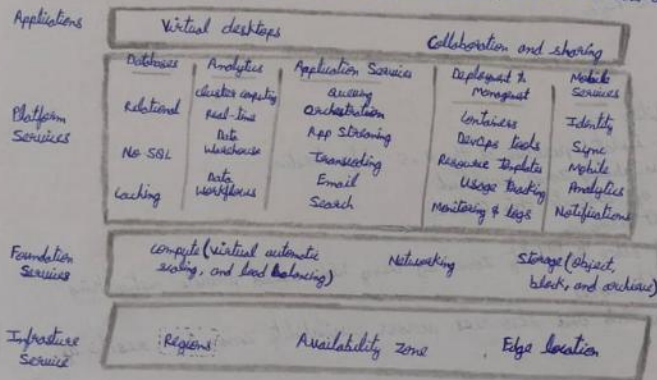 Applications
Virtual desktops
Collaboration and sharing
Platform
Services
Databases
Relational
No SQL
Caching
Analytics
cluster computing
Real-time
Data
Warehouse
Data
Workflows
Application Services
Queuing
Orchestration
App Streaming
Transcoding
Email
Search
Deployment &
Management
Containers
DevOps tools
Resource templates
Usage tracking
Monitoring & logs
Mobile
Services
Identity
Sync
Mobile
Analytics
Notifications
Foundation
Services
compute (virtual automatic
scaling, and load balancing)
Networking
Storage (object,
block, and archive)
Infrasture
Service
Regions
Availability Zone
Edge location